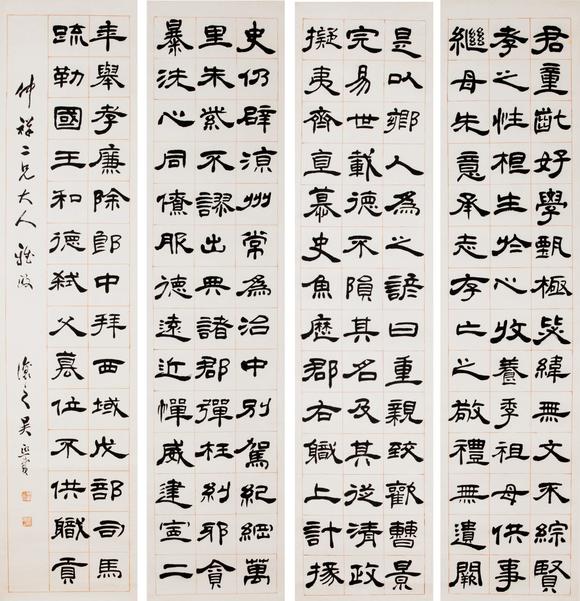 君童齔好學甄極毖緯無文不綜賢
孝之性根生於心收養季祖母供事
繼母先意承志存亡之敬禮無遺闕
是以鄉人為之諺曰重親致歡曹景
完易世載德不隕其名及其從清政
擬夷齊直慕史魚歷郡右職上計掾
史仍辟涼州常為治中別駕紀綱萬
里朱紫不謬出典諸郡彈枉糾邪貪
暴洗心同僚服德遠近憚威建寧二
年舉孝廉除郎中拜西域戊部司馬
疏勒國王和德弒父篡位不供職貢
仲祥二兄大人雅政
讓之吳熙載